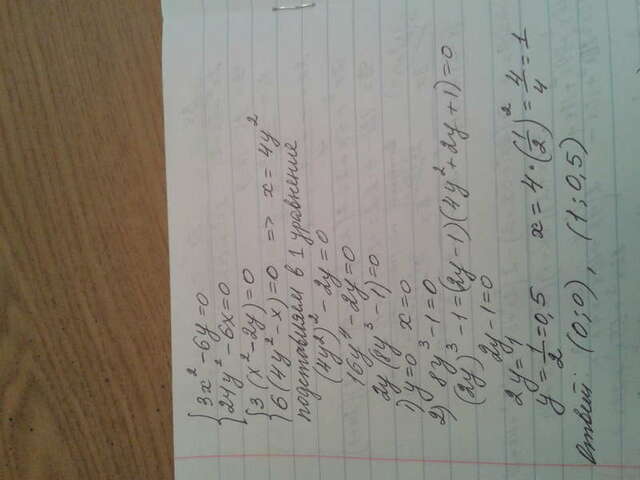 { 3x² - 6y = 0
{ 24y² - 6x = 0
{ 3(x² - 2y) = 0
{ 6(4y² - x) = 0 => x = 4y²
подставляем в 1 уравнение
(4y²)² - 2y = 0
16y⁴ - 2y = 0
2y(8y³ - 1) = 0
1) y = 0 x = 0
2) 8y³ - 1 = 0
(2y)³ - 1 = (2y - 1)(4y² + 2y + 1) = 0
2y - 1 = 0
2y = 1
y = 1/2 = 0,5 x = 4 · (1/2)² = 4/4 = 1
Ответ: (0; 0), (1; 0,5)